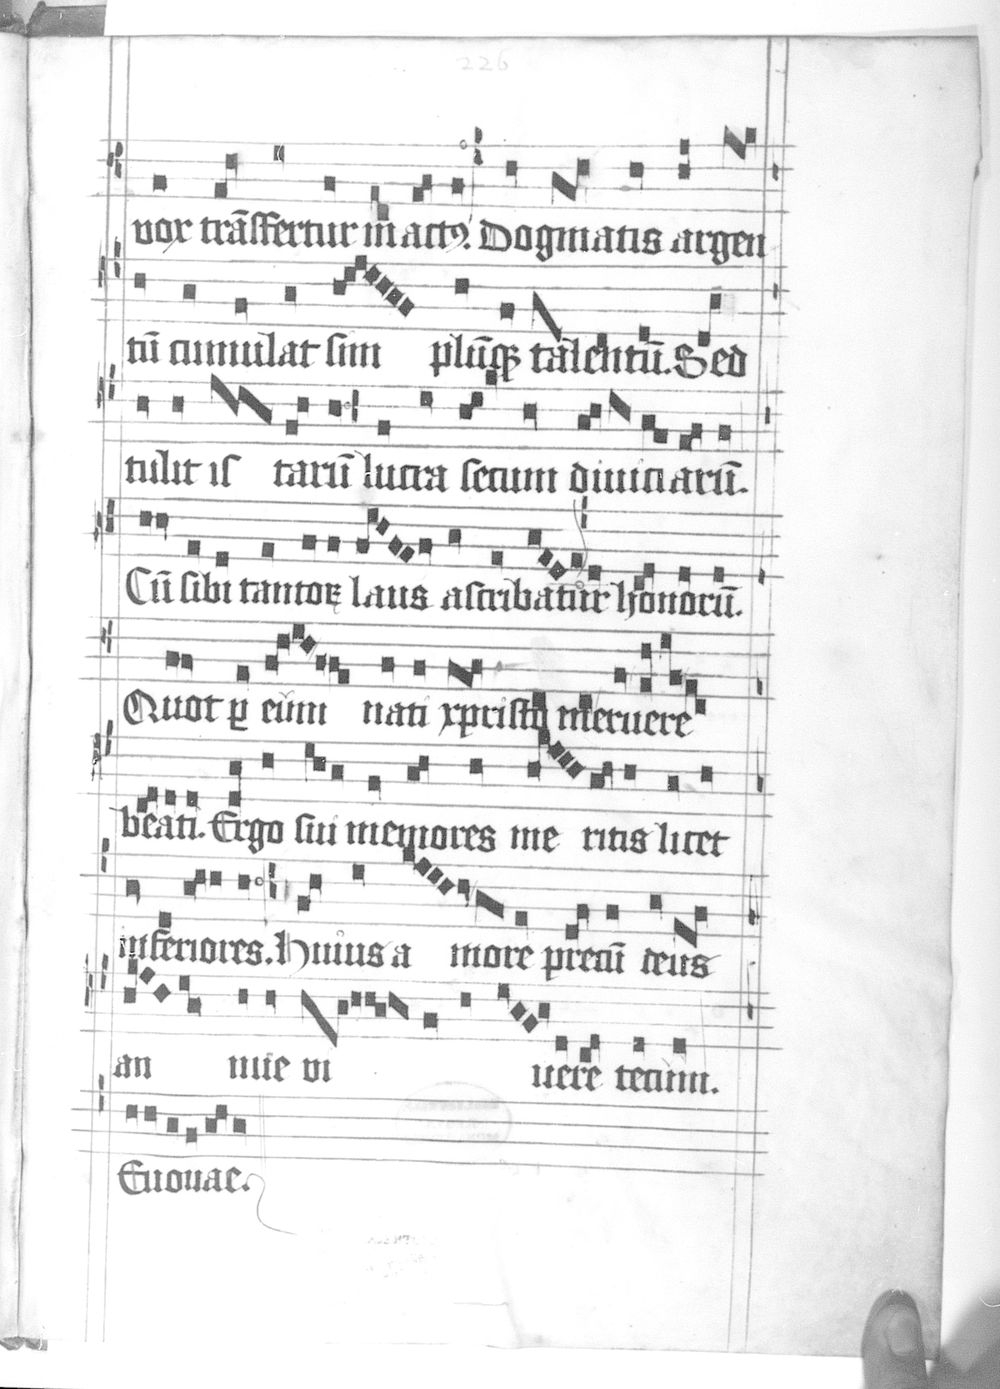 226
vox trãsffertur in actꝰ. Dogmatis argen
tũ cumulat sim plũqꝫ talentũ. Sed
tulit is tarũ lucra secum diuiciarũ.
Cũ sibi tantoꝝ laus ascribatur honorũ.
Quot ꝑ eũm nati xpristũ meruere
beati. Ergo sui memores me ritis licet
inferiores. Huius a more precũ deus
an nue vi uere tecum.
Euouae.